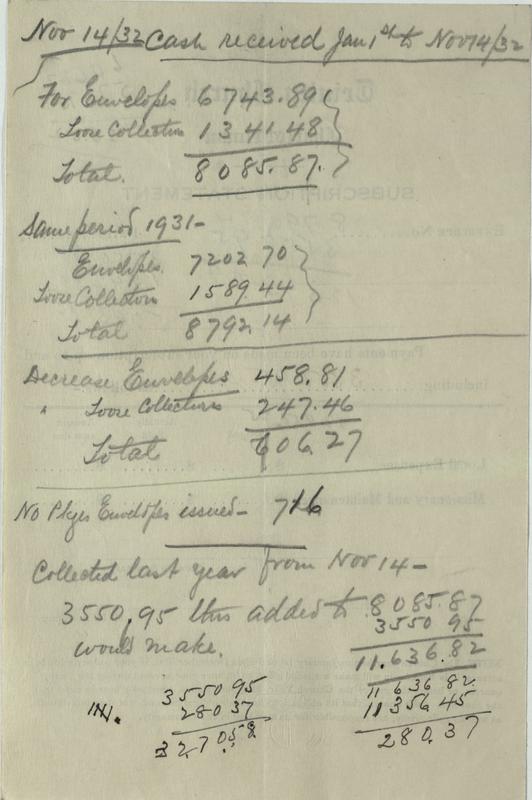 Nov 14/32 Cash received Jan 1st to Nov 14/32
For Envelopes 6743.89
Loose Collection 1341.48
Total. 8085.87.
Same period 1931-
Envelopes. 7202 70
Loose Collection 1589.44
Total 8792.14
Decrease Envelopes 458.81
" Loose Collections 247.46
Total 606.27
No Pkges Envelopes issued- 716
Collected last year from Nov 14-
3550.95 this added to 8085.87
would make. 3550 95
11.636.82
3550 95
28037
327058
11 636 82.
11 356 45
280.37
SUBSCRIPTION STATEMENT
Payments have been made on your
including
Local Expense
Missionary and Maintenance